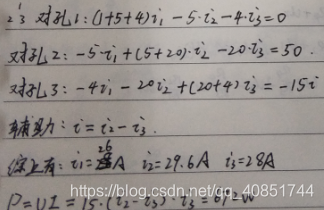 对孔1: (1+5+4)i₁ - 5·i₂ - 4·i₃ = 0
对孔2: -5·i₁ + (5+20)·i₂ - 20·i₃ = 50.
对孔3: -4i₁ - 20i₂ + (20+4)i₃ = -15i
i = i₂ - i₃.
综上有: i₁ = 26A i₂ = 29.6A i₃ = 28A
P = UI = 15·(i₂-i₃)·i₃ = 672W
https://blog.csdn.net/qq_40851744